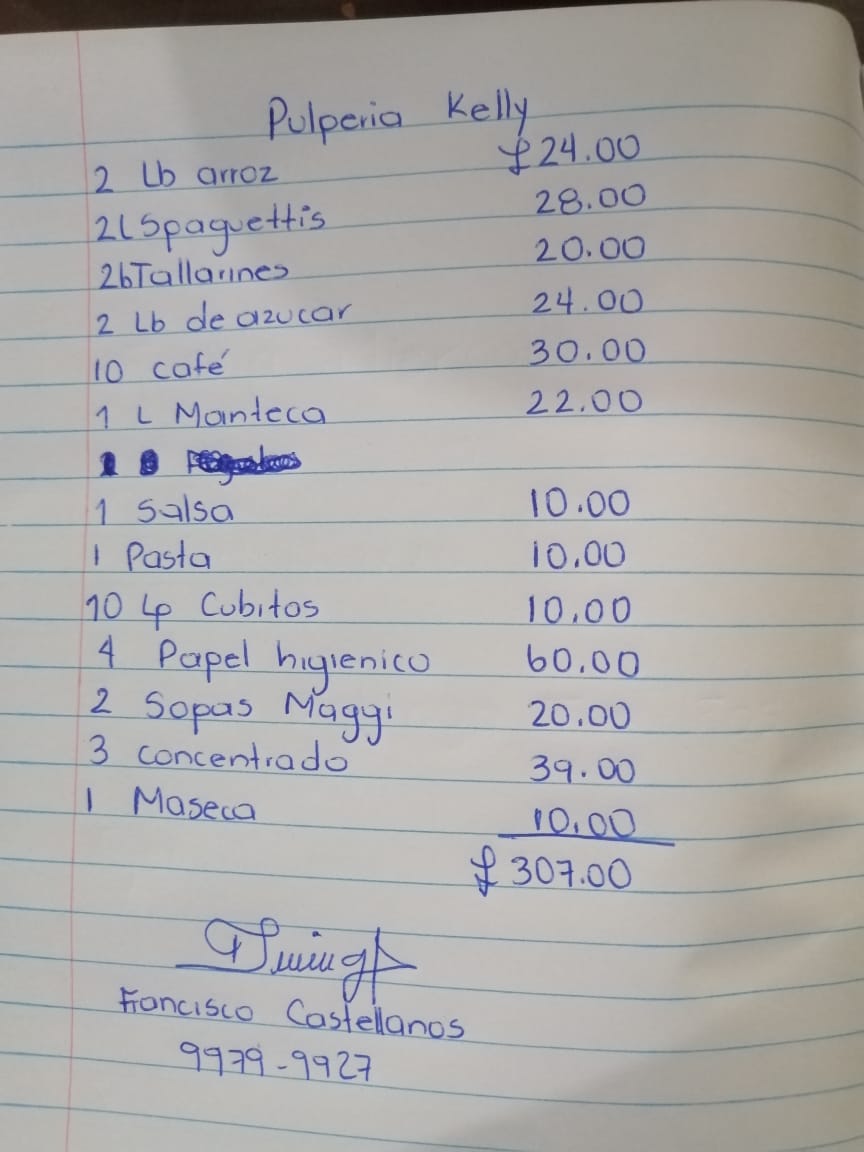 Pulperia Kelly
2 Lb arroz £24.00
2LSpaguettis 28.00
2bTallarines 20.00
2 Lb de azucar 24.00
10 café 30.00
1 L Manteca 22.00
1 Salsa 10.00
1 Pasta 10.00
10 Lp Cubitos 10.00
4 Papel higienico 60.00
2 Sopas Maggi 20.00
3 concentrado 39.00
1 Maseca 10.00
£307.00
Francisco Castellanos
9979-9927